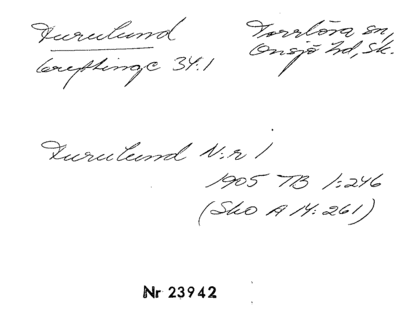 Furulund
Torrlösa sn,
Greftinge 34:1
Onsjö hd, Sk.
Furulund N:r 1
1905 TB 1:246
(Sko A 14:261)
Nr 23942